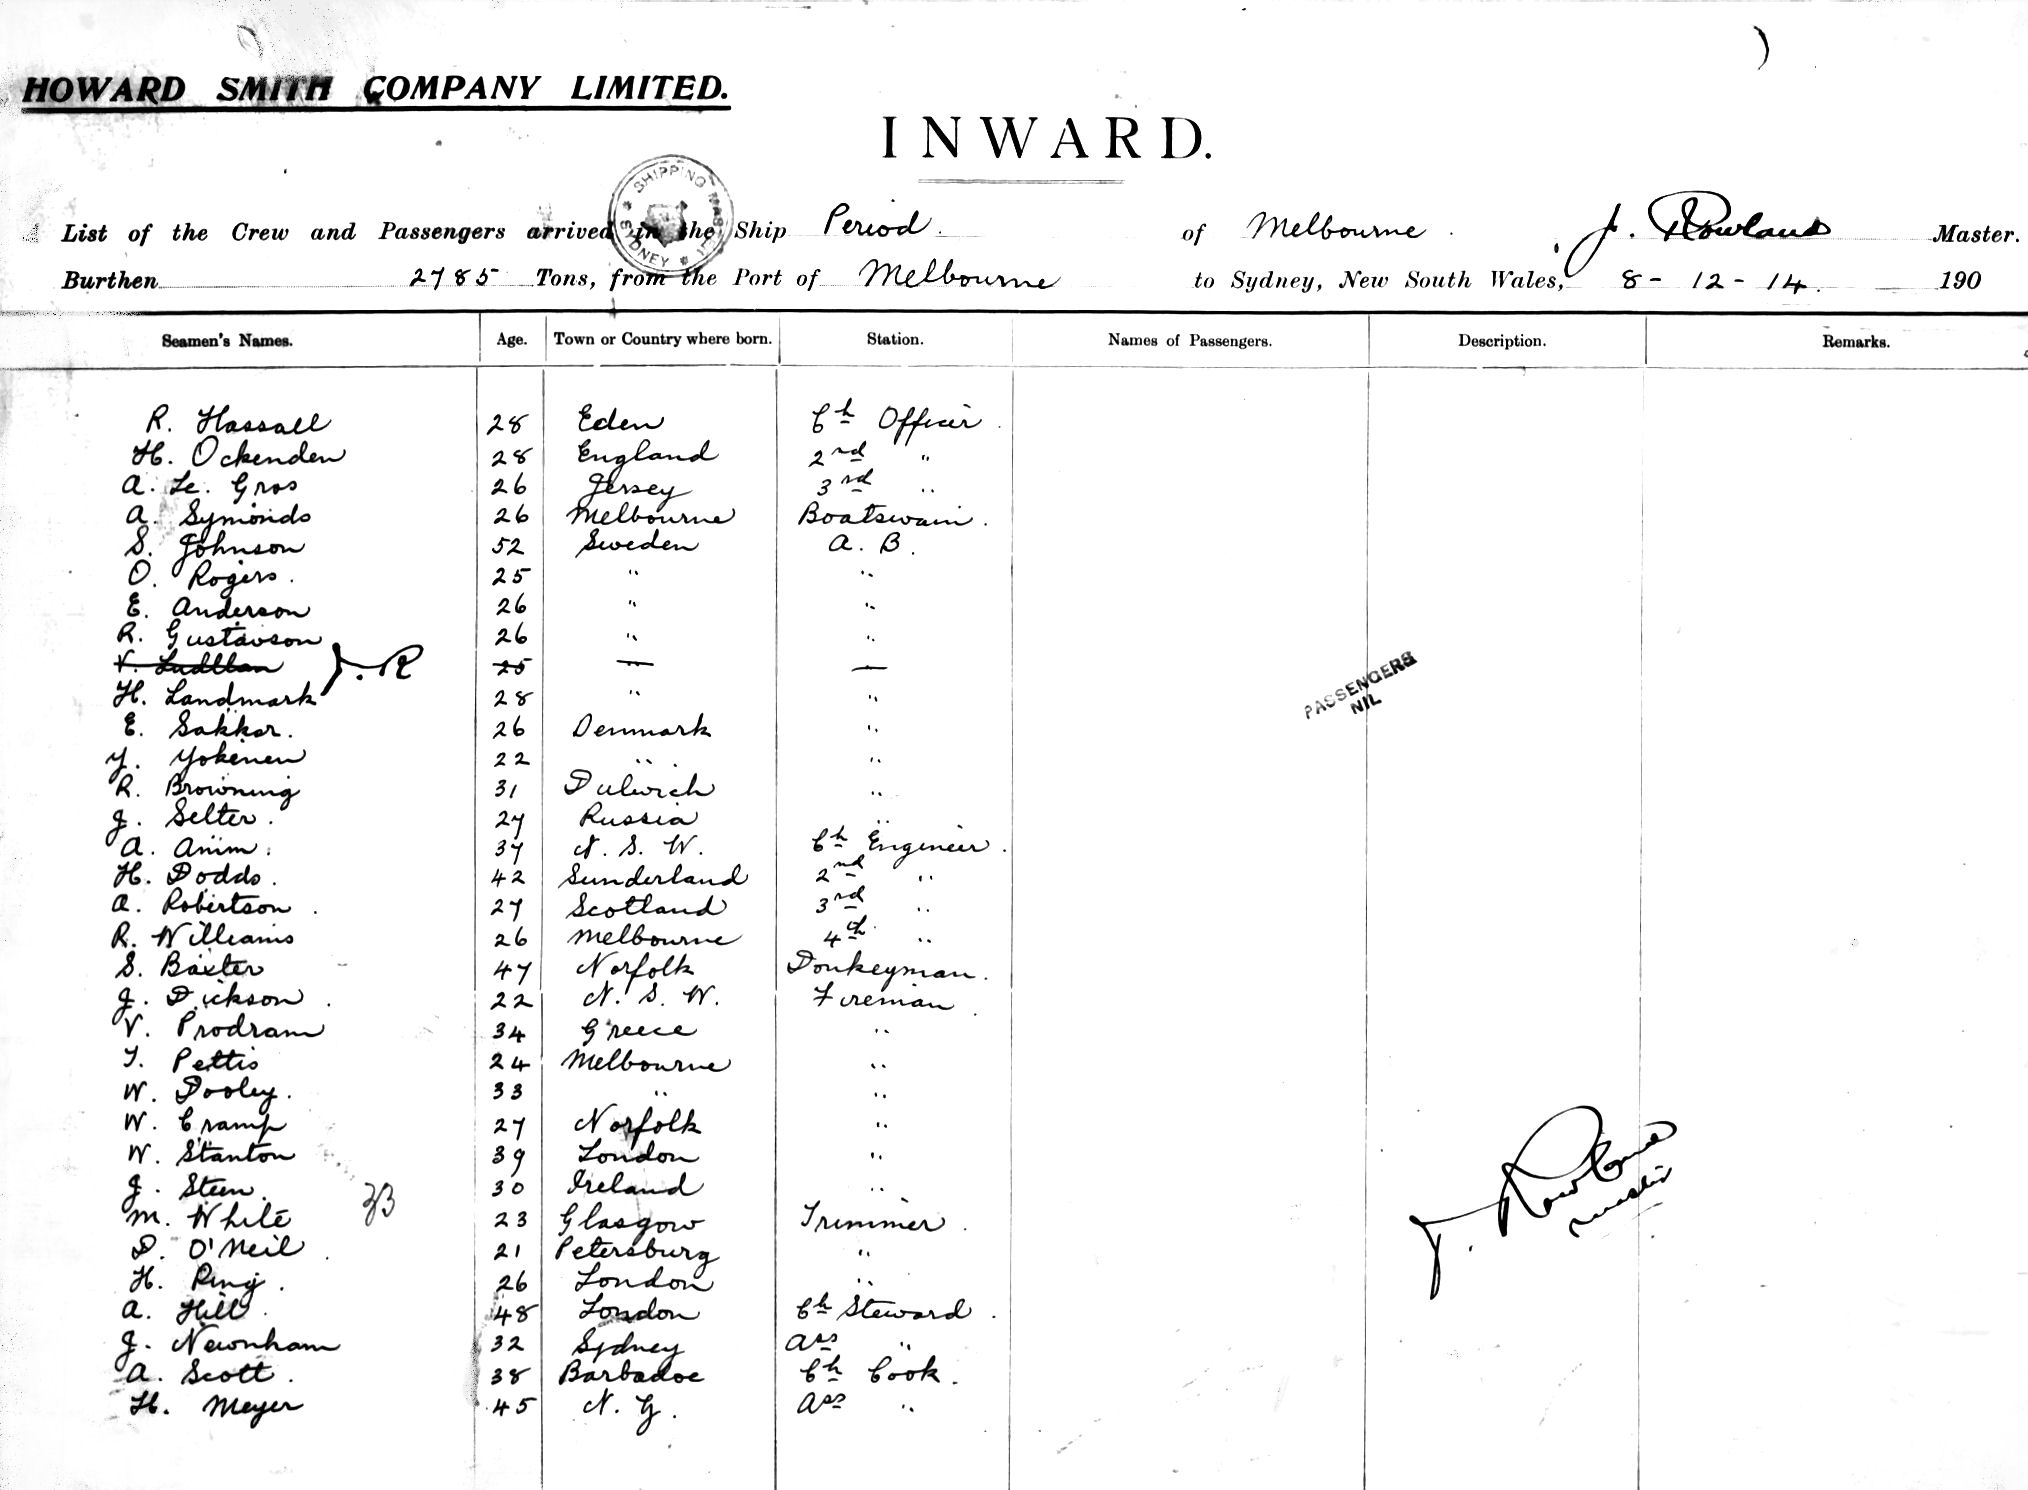 HOWARD SMITH COMPANY LIMITED.
INWARD.
SHIPPING MASTER SYDNEY
List of the Crew and Passengers arrived in the Ship Period. of Melbourne. J. Rowland Master.
Burthen 2785 Tons, from the Port of Melbourne to Sydney, New South Wales, 8 - 12 - 14. 190
Seamen's Names. Age. Town or Country where born. Station. Names of Passengers. Description. Remarks.
R. Hassall 28 Eden Ch Officer.
H. Ockenden 28 England 2nd "
A. Le. Gros 26 Jersey 3rd "
A. Symonds 26 Melbourne Boatswain.
S. Johnson 52 Sweden A. B.
O. Rogers. 25 " "
E. Anderson 26 " "
R. Gustavson 26 " "
V. Ludllan J.R 25 — —
H. Landmark 28 " "
E. Sakkar. 26 Denmark "
Y. Yokenen 22 " "
R. Browning 31 Dulwich "
J. Selter. 27 Russia "
A. Anim. 37 N. S. W. Ch Engineer.
H. Dodds. 42 Sunderland 2nd "
A. Robertson. 27 Scotland 3rd "
R. Williams 26 Melbourne 4th "
S. Baxter 47 Norfolk Donkeyman.
J. Dickson. 22 N. S. W. Fireman.
V. Prodram 34 Greece "
T. Pettis 24 Melbourne "
W. Dooley. 33 " "
W. Cramp 27 Norfolk "
W. Stanton 39 London "
J. Steen. 30 Ireland "
M. White 33 23 Glasgow Trimmer.
D. O'Neil. 21 Petersburg "
H. Ring. 26 London "
A. Hill. 48 London Ch Steward.
J. Newnham 32 Sydney Ass "
A. Scott. 38 Barbadoe Ch Cook.
H. Meyer 45 N. G. Ass "
PASSENGERS
NIL
J. Rowland
Master